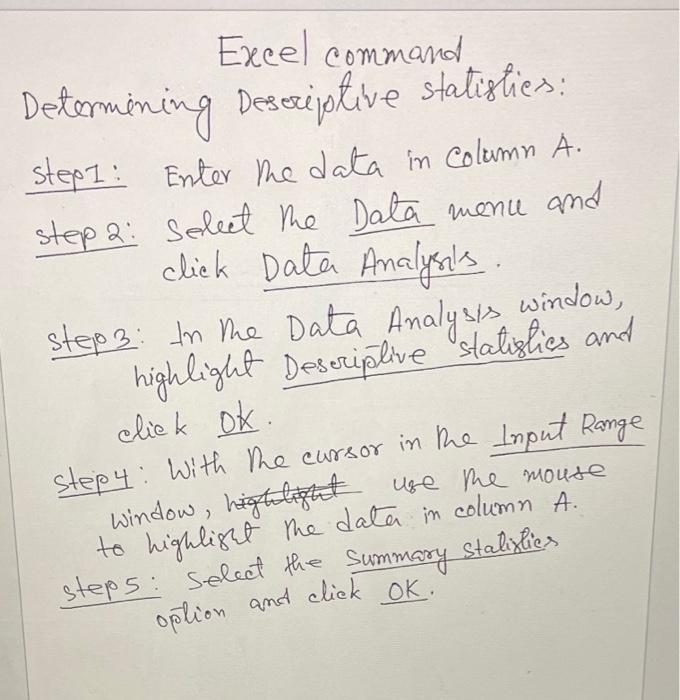 Excel command
Determining Descriptive statistics:
Step1: Enter the data in Column A.
step 2: Select the Data menu and
click Data Analysis.
step 3: In the Data Analysis window,
highlight Descriptive statistics and
click OK.
step 4: With the cursor in the Input Range
window, highlight use the mouse
to highlight the data in column A.
step 5: Select the summary statistics
option and click OK.